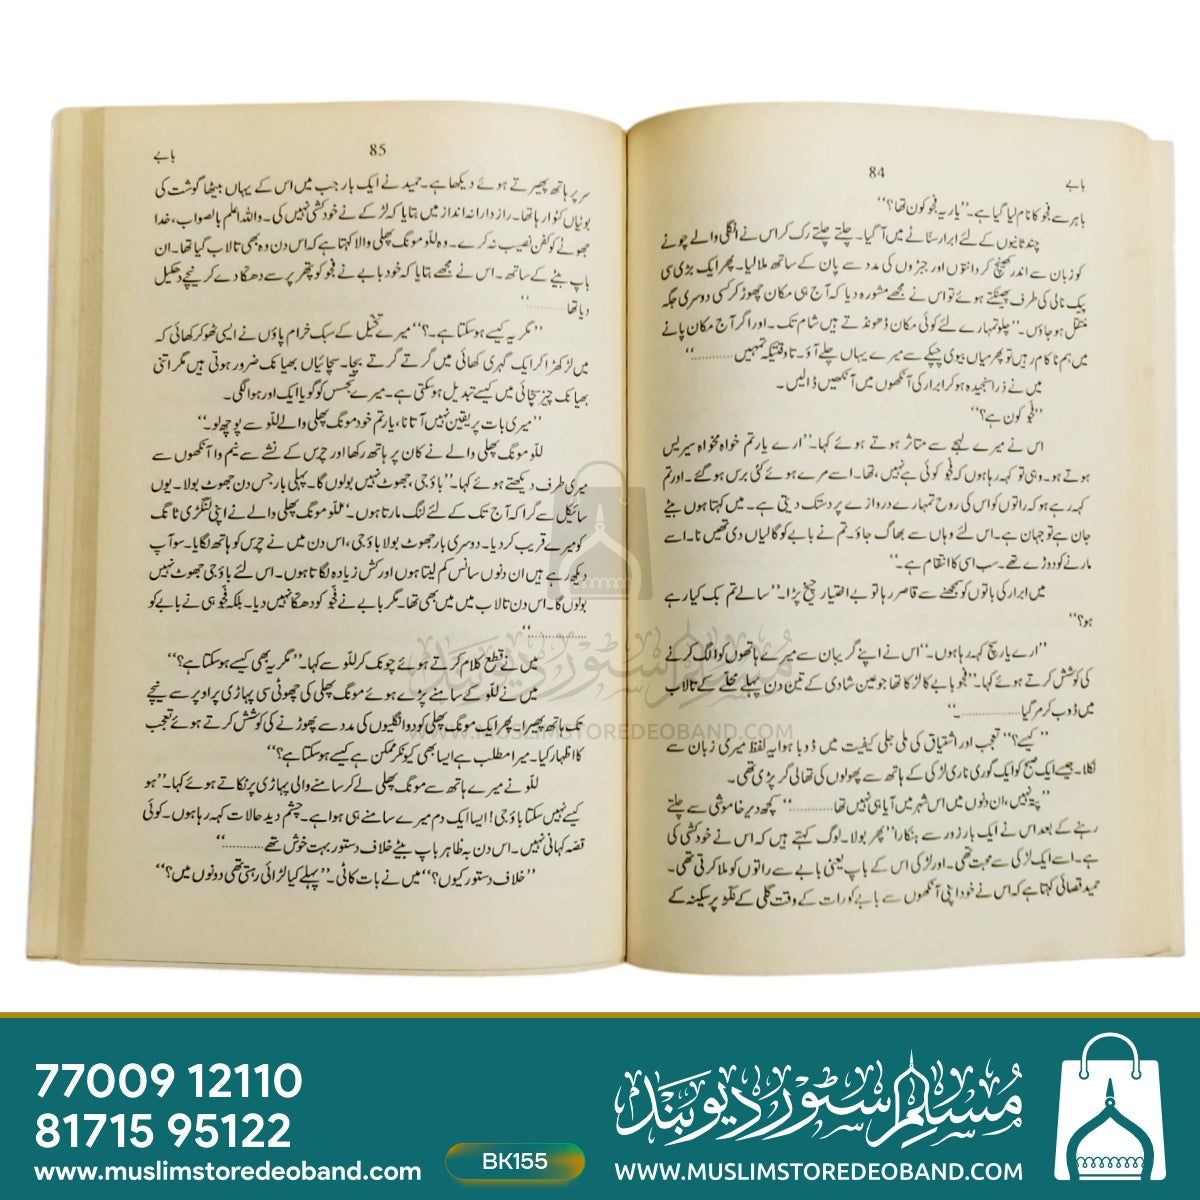 84
بابے
باہر سے فجو کا نام لیا گیا ہے۔ ”یار یہ فجو کون تھا؟“
چند ثانیوں کے لئے ابرار سناٹے میں آ گیا۔ چلتے چلتے رک کر اس نے انگلی والے چونے
کو زبان سے اندر کھینچ کر دانتوں اور جبڑوں کی مدد سے پان کے ساتھ ملا لیا۔ پھر ایک بڑی سی
پیک نالی کی طرف پھینکتے ہوئے تو اس نے مجھے مشورہ دیا کہ آج ہی مکان چھوڑ کر کسی دوسری جگہ
منتقل ہو جاؤں۔ ”چلو تمہارے لئے کوئی مکان ڈھونڈتے ہیں شام تک۔ اور اگر آج مکان پانے
میں ہم ناکام رہیں تو پھر میاں بیوی چپکے سے میرے یہاں چلے آؤ۔ تا وقتیکہ تمہیں ............“
میں نے ذرا سنجیدہ ہو کر ابرار کی آنکھوں میں آنکھیں ڈالیں۔
”فجو کون ہے؟“
اس نے میرے لہجے سے متاثر ہوتے ہوئے کہا۔ ”ارے یار تم خواہ مخواہ سیریس
ہوتے ہو۔ وہی تو کہہ رہا ہوں کہ فجو کوئی ہے نہیں، تھا۔ اسے مرے ہوئے کئی برس ہو گئے۔ اور تم
کہہ رہے ہو کہ راتوں کو اس کی روح تمہارے دروازے پر دستک دیتی ہے۔ میں کہتا ہوں بیٹے
جان ہے تو جہان ہے۔ اس لئے وہاں سے بھاگ جاؤ۔ تم نے بابے کو گالیاں دی تھیں نا۔ اسے
مارنے کو دوڑے تھے۔ سب اسی کا انتقام ہے۔“
میں ابرار کی باتوں کو سمجھنے سے قاصر رہا تو بے اختیار چیخ پڑا۔ ”سالے تم بک کیا رہے
ہو؟“
”ارے یار سچ کہہ رہا ہوں۔“ اس نے اپنے گریبان سے میرے ہاتھوں کو الگ کرنے
کی کوشش کرتے ہوئے کہا۔ ”فجو بابے کا لڑکا تھا جو عین شادی کے تین دن پہلے محلے کے تالاب
میں ڈوب کر مر گیا ............۔“
”کیسے؟“ تعجب اور اشتیاق کی ملی جلی کیفیت میں ڈوبا ہوا یہ لفظ میری زبان سے
نکلا۔ جیسے ایک صبح کو ایک گوری ناری لڑکی کے ہاتھ سے پھولوں کی تھالی گر پڑی تھی۔
”پتہ نہیں، ان دنوں میں اس شہر میں آیا ہی نہیں تھا ............“ کچھ دیر خاموشی سے چلتے
رہنے کے بعد اس نے ایک بار زور سے ہنکارا ”پھر بولا۔ لوگ کہتے ہیں کہ اس نے خودکشی کی
ہے۔ اسے ایک لڑکی سے محبت تھی۔ اور لڑکی اس کے باپ یعنی بابے سے راتوں کو ملا کرتی تھی۔
حمید قصائی کہتا ہے کہ اس نے خود اپنی آنکھوں سے بابے کو رات کے وقت گلی کے نکڑ پر سکینہ کے
85
بابے
سر پر ہاتھ پھیرتے ہوئے دیکھا ہے۔ حمید نے ایک بار جب میں اس کے یہاں بیٹھا گوشت کی
بوٹیاں کٹوا رہا تھا۔ راز دارانہ انداز میں بتایا کہ لڑکے نے خودکشی نہیں کی۔ واللہ اعلم بالصواب، خدا
جھوٹے کو کفن نصیب نہ کرے۔ وہ للّو مونگ پھلی والا کہتا ہے کہ اس دن وہ بھی تالاب گیا تھا۔ ان
باپ بیٹے کے ساتھ۔ اس نے مجھے بتایا کہ خود بابے نے فجو کو پتھر پر سے دھکا دے کر نیچے دھکیل
دیا تھا ............“
”مگر یہ کیسے ہو سکتا ہے۔؟“ میرے تخیل کے سبک خرام پاؤں نے ایسی ٹھوکر کھائی کہ
میں لڑکھڑا کر ایک گہری کھائی میں گرتے گرتے بچا۔ سچائیاں بھیانک ضرور ہوتی ہیں مگر اتنی
بھیانک چیز سچائی میں کیسے تبدیل ہو سکتی ہے۔ میرے تجسس کو گویا ایک اور ہوا لگی۔
”میری بات پر یقین نہیں آتا نا، یار تم خود مونگ پھلی والے للّو سے پوچھ لو۔“
للّو مونگ پھلی والے نے کان پر ہاتھ رکھا اور چرس کے نشے سے نیم وا آنکھوں سے
میری طرف دیکھتے ہوئے کہا۔ ”باؤ جی، جھوٹ نہیں بولوں گا۔ پہلی بار جس دن جھوٹ بولا۔ یوں
سائیکل سے گرا کہ آج تک کے لئے لنگ مارتا ہوں۔“ للّو مونگ پھلی والے نے اپنی لنگڑی ٹانگ
کو میرے قریب کر دیا۔ دوسری بار جھوٹ بولا باؤ جی، اس دن میں نے چرس کو ہاتھ لگایا۔ سو آپ
دیکھ رہے ہیں ان دنوں سانس کم لیتا ہوں اور کش زیادہ لگاتا ہوں۔ اس لئے باؤ جی جھوٹ نہیں
بولوں گا۔ اس دن تالاب میں میں بھی تھا۔ مگر بابے نے فجو کو دھکا نہیں دیا۔ بلکہ فجو ہی نے بابے کو
............“
میں نے قطع کلام کرتے ہوئے چونک کر للّو سے کہا۔ ”مگر یہ بھی کیسے ہو سکتا ہے؟“
میں نے للّو کے سامنے پڑے ہوئے مونگ پھلی کی چھوٹی سی پہاڑی پر اوپر سے نیچے
تک ہاتھ پھیرا۔ پھر ایک مونگ پھلی کو دو انگلیوں کی مدد سے پھوڑنے کی کوشش کرتے ہوئے تعجب
کا اظہار کیا۔ میرا مطلب ہے ایسا بھی کیونکر ممکن ہے کیسے ہو سکتا ہے؟“
للّو نے میرے ہاتھ سے مونگ پھلی لے کر سامنے والی پہاڑی پر ٹکاتے ہوئے کہا۔ ”ہو
کیسے نہیں سکتا باؤ جی! ایسا ایک دم میرے سامنے ہی ہوا ہے۔ چشم دید حالات کہہ رہا ہوں۔ کوئی
قصہ کہانی نہیں۔ اس دن بہ ظاہر باپ بیٹے خلاف دستور بہت خوش تھے ............“
”خلاف دستور کیوں؟“ میں نے بات کاٹی۔ ”پہلے کیا لڑائی رہتی تھی دونوں میں؟“
مسلم سٹور دیوبند
WWW.MUSLIMSTOREDEOBAND.COM
77009 12110
81715 95122
www.muslimstoredeoband.com
BK155
مسلم سٹور دیوبند
WWW.MUSLIMSTOREDEOBAND.COM